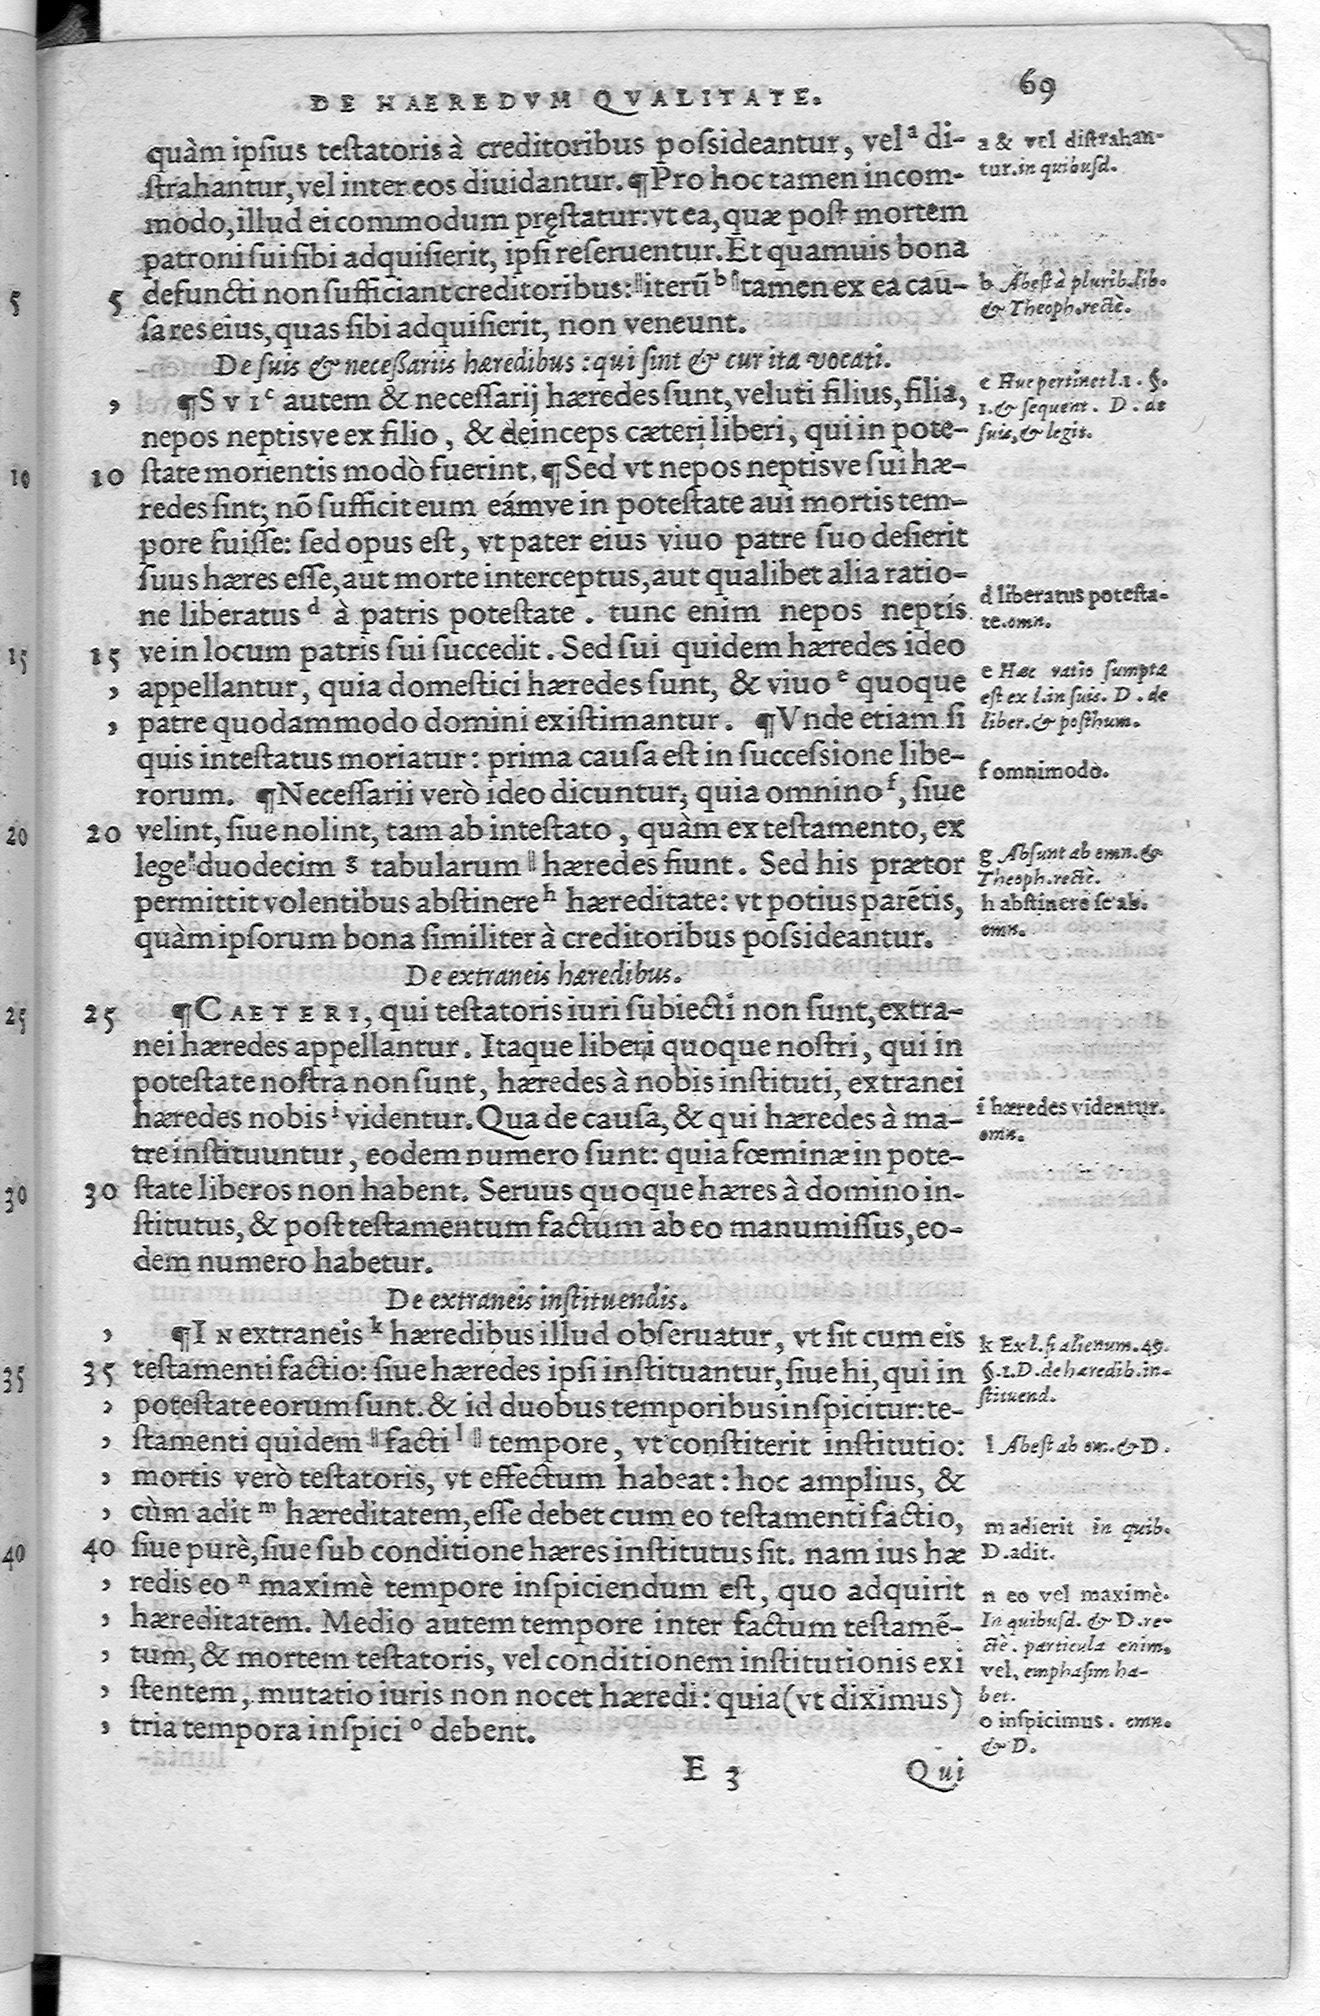 DE HAEREDVM QVALITATE.
69
quàm ipsius testatoris à creditoribus possideantur, vel a di-
strahantur, vel inter eos diuidantur. ¶Pro hoc tamen incom-
modo, illud ei commodum pręstatur: vt ea, quæ post mortem
patroni sui sibi adquisierit, ipsi reseruentur. Et quamuis bona
5 defuncti non sufficiant creditoribus: "iterũ b" tamen ex ea cau-
sa res eius, quas sibi adquisierit, non veneunt.
De suis & necessariis hæredibus: qui sint & cur ita vocati.
, ¶SVI c autem & necessarij hæredes sunt, veluti filius, filia,
nepos neptisve ex filio, & deinceps cæteri liberi, qui in pote-
10 state morientis modò fuerint. ¶Sed vt nepos neptisve sui hæ-
redes sint; nõ sufficit eum eámve in potestate aui mortis tem-
pore fuisse: sed opus est, vt pater eius viuo patre suo desierit
suus hæres esse, aut morte interceptus, aut qualibet alia ratio-
ne liberatus d à patris potestate. tunc enim nepos neptís
15 ve in locum patris sui succedit. Sed sui quidem hæredes ideo
, appellantur, quia domestici hæredes sunt, & viuo e quoque
, patre quodammodo domini existimantur. ¶Vnde etiam si
quis intestatus moriatur: prima causa est in successione libe-
rorum. ¶Necessarii verò ideo dicuntur; quia omnino f, siue
20 velint, siue nolint, tam ab intestato, quàm ex testamento, ex
lege "duodecim g tabularum" hæredes fiunt. Sed his prætor
permittit volentibus abstinere h hæreditate: vt potius parẽtis,
quàm ipsorum bona similiter à creditoribus possideantur.
De extraneis hæredibus.
25 ¶CAETERI, qui testatoris iuri subiecti non sunt, extra-
nei hæredes appellantur. Itaque liberi quoque nostri, qui in
potestate nostra non sunt, hæredes à nobis instituti, extranei
hæredes nobis i videntur. Qua de causa, & qui hæredes à ma-
tre instituuntur, eodem numero sunt: quia fœminæ in pote-
30 state liberos non habent. Seruus quoque hæres à domino in-
stitutus, & post testamentum factum ab eo manumissus, eo-
dem numero habetur.
De extraneis instituendis.
, ¶IN extraneis k hæredibus illud obseruatur, vt sit cum eis
35 testamenti factio: siue hæredes ipsi instituantur, siue hi, qui in
, potestate eorum sunt. & id duobus temporibus inspicitur: te-
, stamenti quidem "facti l" tempore, vt constiterit institutio:
, mortis verò testatoris, vt effectum habeat: hoc amplius, &
, cùm adit m hæreditatem, esse debet cum eo testamenti factio,
40 siue purè, siue sub conditione hæres institutus sit. nam ius hæ
, redis eo n maximè tempore inspiciendum est, quo adquirit
, hæreditatem. Medio autem tempore inter factum testamẽ-
, tum, & mortem testatoris, vel conditionem institutionis exi
, stentem, mutatio iuris non nocet hæredi: quia (vt diximus)
, tria tempora inspici o debent.
E 3
Qui
a & vel distrahan-
tur. in quibusd.
b Abest à plurib. lib.
& Theoph. rectè.
c Huc pertinet l. 1. §.
1. & sequent. D. de
suis, & legit.
d liberatus potesta-
te. omn.
e Hæc ratio sumpta
est ex l. in suis. D. de
liber. & posthum.
f omnimodò.
g Absunt ab omn. &
Theoph. rectè.
h abstinere se ab.
omn.
i hæredes videntur.
omn.
k Ex l. si alienum. 49.
§. 1. D. de hæredib. in-
stituend.
l Abest ab om. & D.
m adierit in quib.
D. adit.
n eo vel maximè.
In quibusd. & D. re-
ctè. particula enim,
vel, emphasim ha-
bet.
o inspicimus. omn.
& D.
5
10
15
20
25
30
35
40